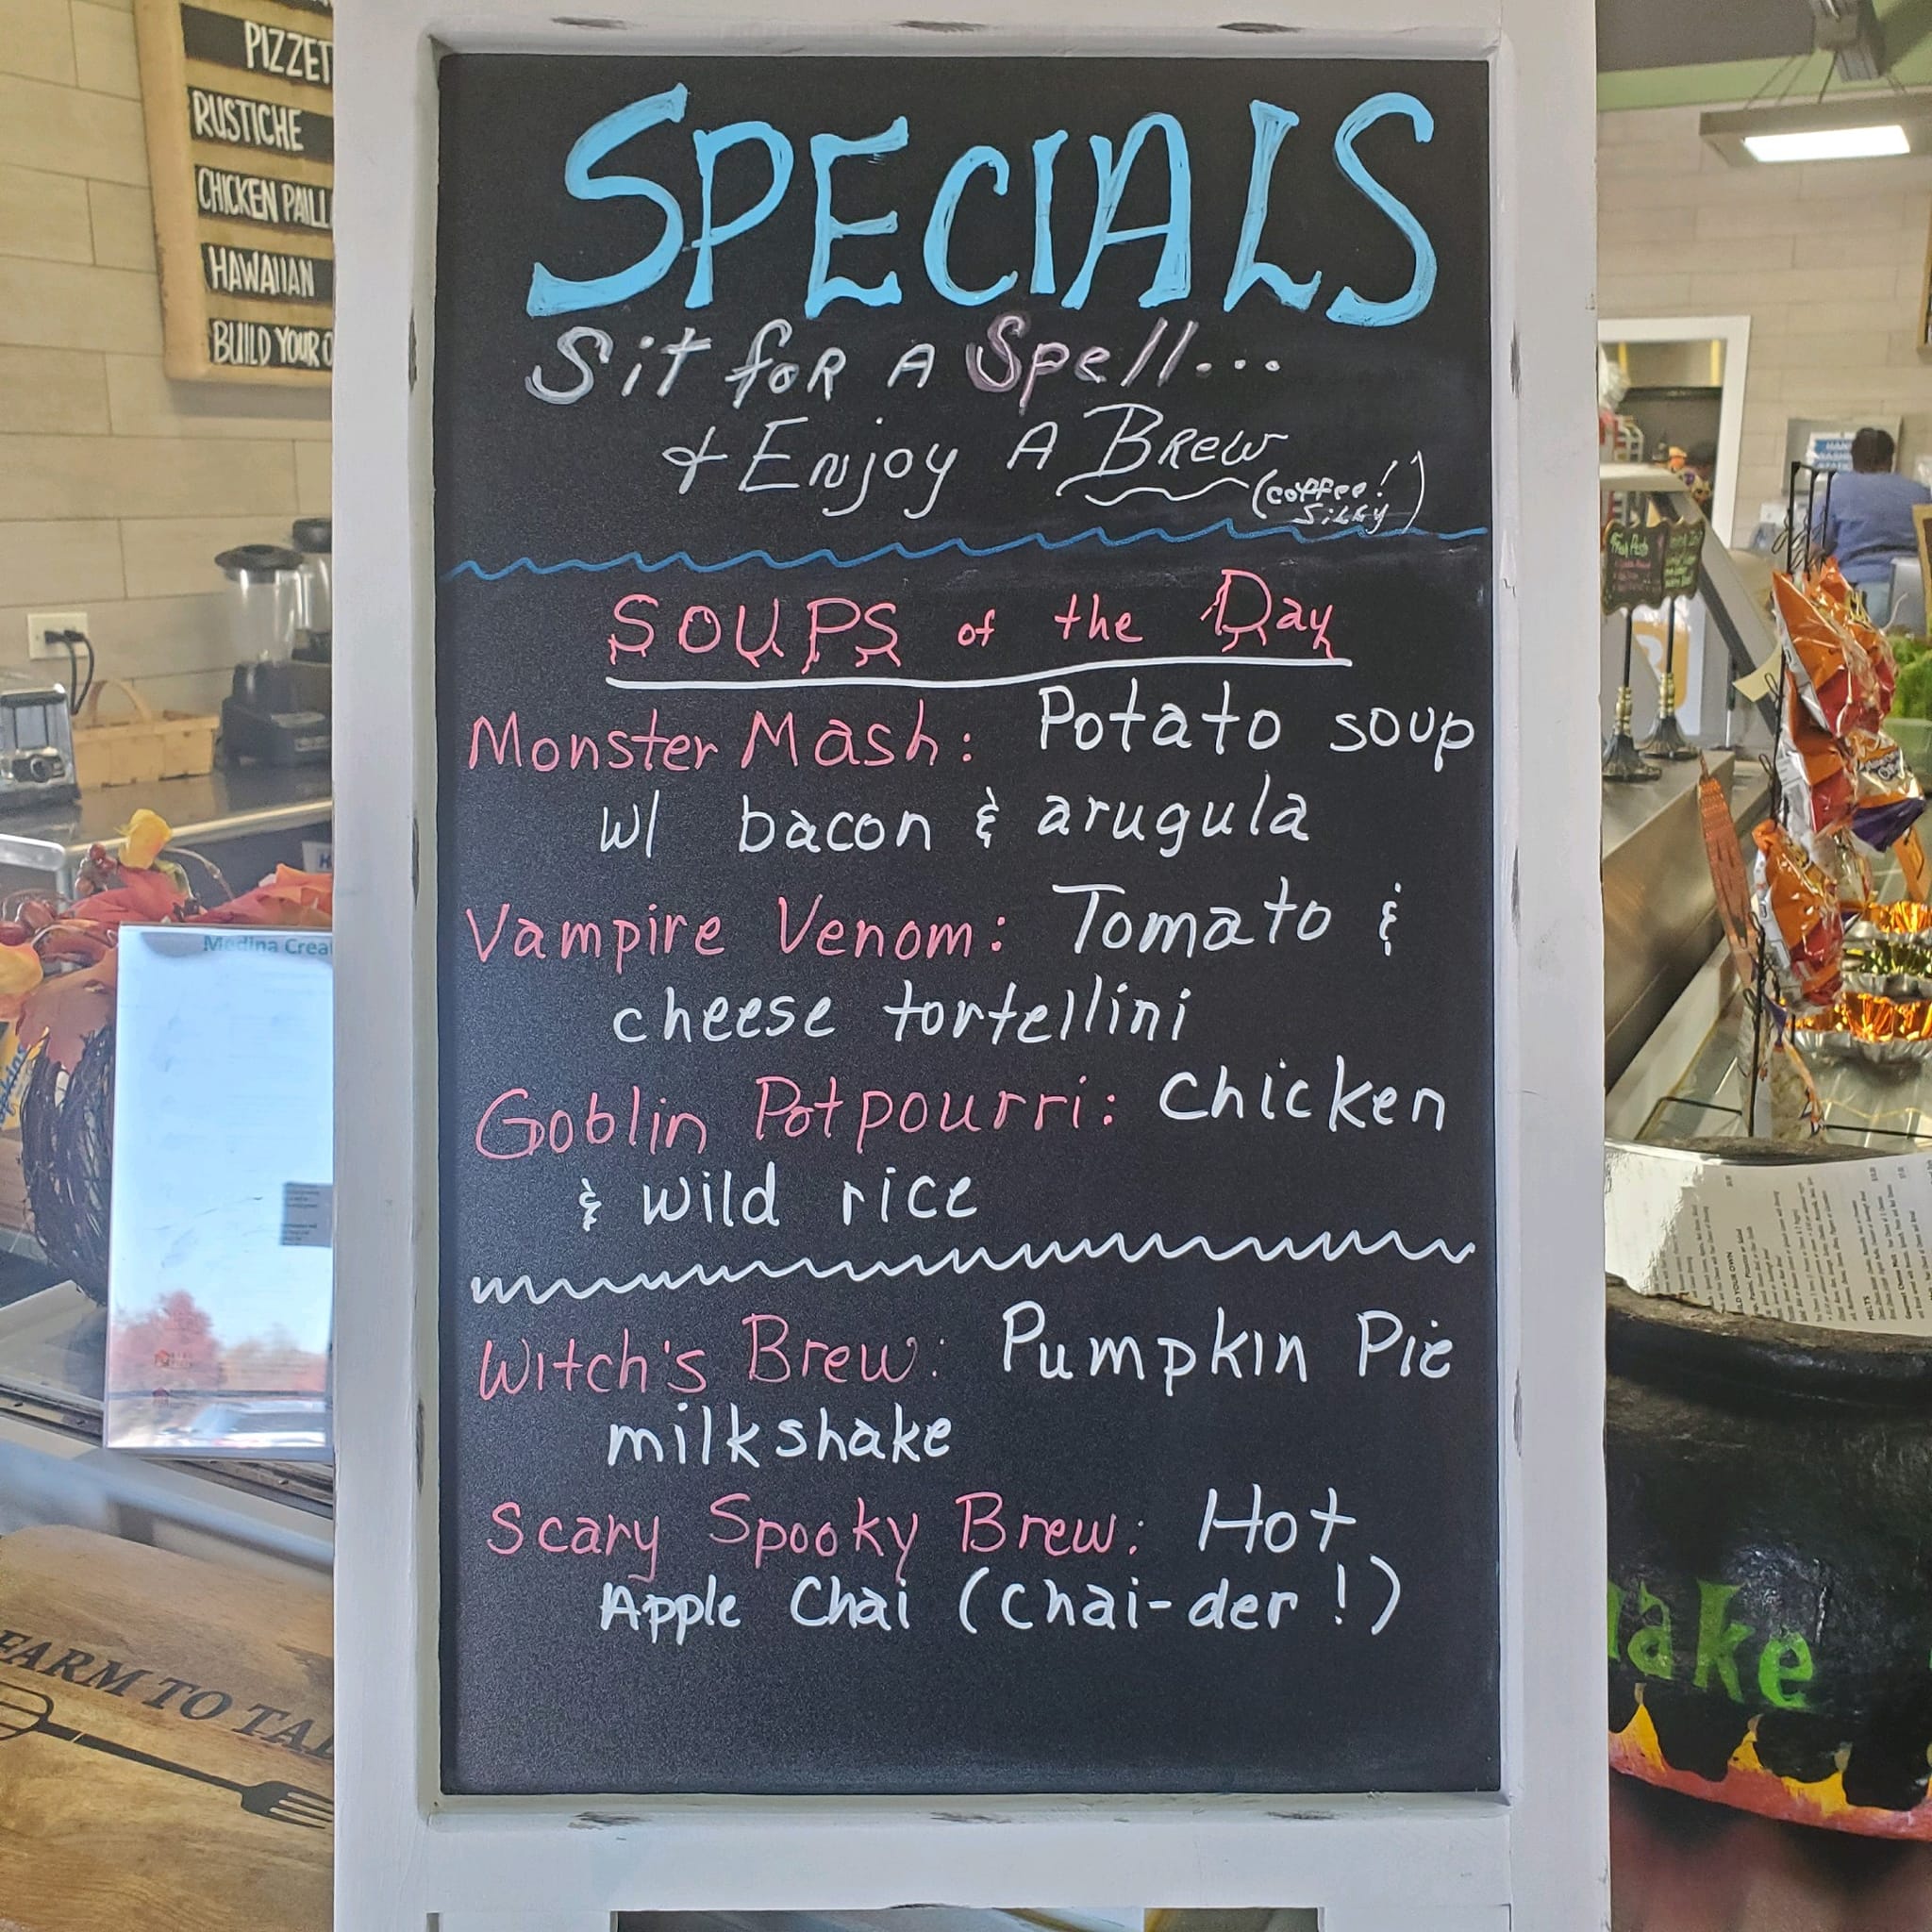 SPECIALS
Sit for A Spell...
+ Enjoy A Brew
(coffee!
Silly)
SOUPS of the Day
Monster Mash: Potato soup
w/ bacon & arugula
Vampire Venom: Tomato &
cheese tortellini
Goblin Potpourri: Chicken
& wild rice
Witch's Brew: Pumpkin Pie
milkshake
Scary Spooky Brew: Hot
Apple Chai (Chai-der!)
PIZZET
RUSTICHE
CHICKEN PAILL
HAWAIIAN
BUILD YOUR O
Medina Crea
FARM TO TAB
ake